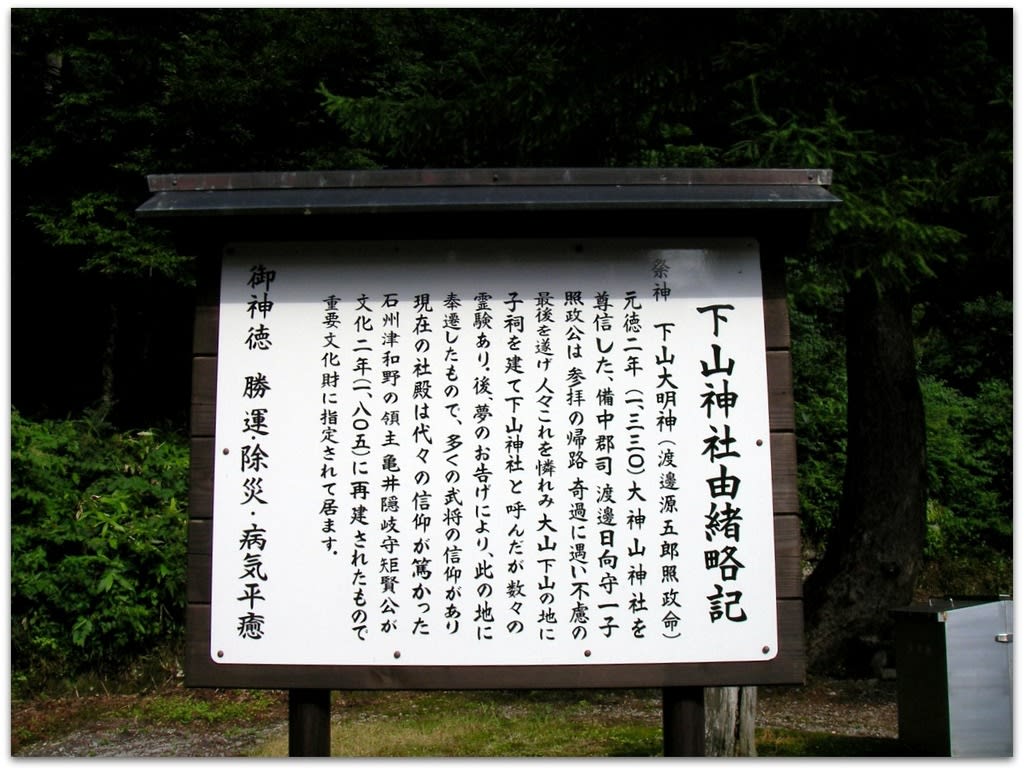 下山神社由緒略記
祭神　下山大明神（渡邊源五郎照政命）
元徳二年（一、三三〇）大神山神社を
尊信した、備中郡司 渡邊日向守一子
照政公は 参拝の帰路 奇過に遇い不慮の
最後を遂げ人々これを憐れみ大山下山の地に
子祠を建て下山神社と呼んだが数々の
霊験あり、後、夢のお告げにより、此の地に
奉遷したもので、多くの武将の信仰があり
現在の社殿は代々の信仰が篤かった
石州津和野の領主亀井隠岐守矩賢公が
文化二年（一、八〇五）に再建されたもので
重要文化財に指定されて居ます。
御神徳　勝運・除災・病気平癒